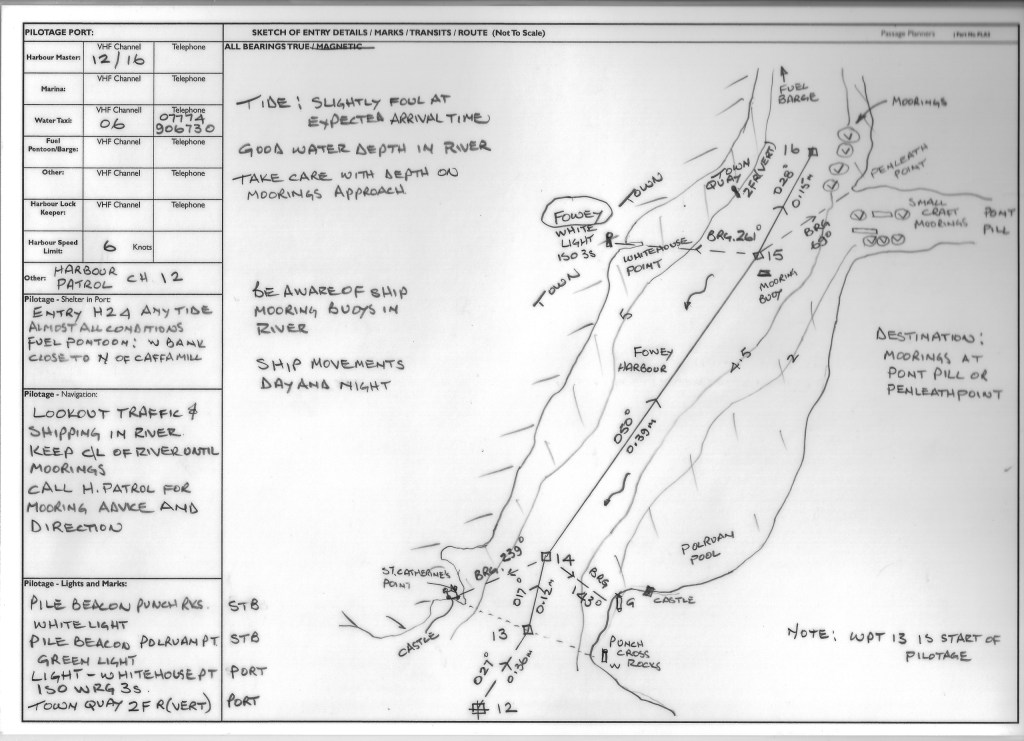 PILOTAGE PORT:
SKETCH OF ENTRY DETAILS / MARKS / TRANSITS / ROUTE (Not To Scale)
Passage Planners
ALL BEARINGS TRUE / MAGNETIC
VHF Channel
Telephone
Harbour Master:
12/16
VHF Channel
Telephone
Marina:
VHF Channell
Telephone
Water Taxi:
06
07774
906730
Fuel
Pontoon/Barge:
VHF Channel
Telephone
Other:
VHF Channel
Telephone
Harbour Lock
Keeper:
VHF Channel
Telephone
Harbour Speed
Limit:
6 Knots
Other: HARBOUR
PATROL CH 12
Pilotage - Shelter in Port:
ENTRY H24 ANY TIDE
ALMOST ALL CONDITIONS
FUEL PONTOON: W BANK
CLOSE TO N OF CAFFA MILL
Pilotage - Navigation:
LOOKOUT TRAFFIC &
SHIPPING IN RIVER.
KEEP C/L OF RIVER UNTIL
MOORINGS
CALL H. PATROL FOR
MOORING ADVICE AND
DIRECTION
Pilotage - Lights and Marks:
PILE BEACON PUNCH RKS. STB
WHITE LIGHT
PILE BEACON POLRUAN PT. STB
GREEN LIGHT
LIGHT - WHITEHOUSE PT PORT
ISO WRG 3S.
TOWN QUAY 2F R(VERT) PORT
TIDE: SLIGHTLY FOUL AT
EXPECTED ARRIVAL TIME
GOOD WATER DEPTH IN RIVER
TAKE CARE WITH DEPTH ON
MOORINGS APPROACH
BE AWARE OF SHIP
MOORING BUOYS IN
RIVER
SHIP MOVEMENTS
DAY AND NIGHT
FUEL
BARGE
MOORINGS
PENLEATH
POINT
16
TOWN
QUAY
2FR(VERT)
028°
0.15M
TOWN
FOWEY
WHITE
LIGHT
ISO 3s
WHITEHOUSE
POINT
BRG. 261°
BRG
69°
15
SMALL
CRAFT
MOORINGS
PONT
PILL
TOWN
MOORING
BUOY
6
FOWEY
HARBOUR
4.5
2
DESTINATION:
MOORINGS AT
PONT PILL OR
PENLEATH POINT
050°
0.39M
POLRUAN
POOL
ST. CATHERINE'S
POINT
BRG. 239°
14
BRG
143°
G
CASTLE
017°
0.12M
CASTLE
13
PUNCH
CROSS
W ROCKS
027°
0.36M
12
NOTE: WPT 13 IS START OF
PILOTAGE